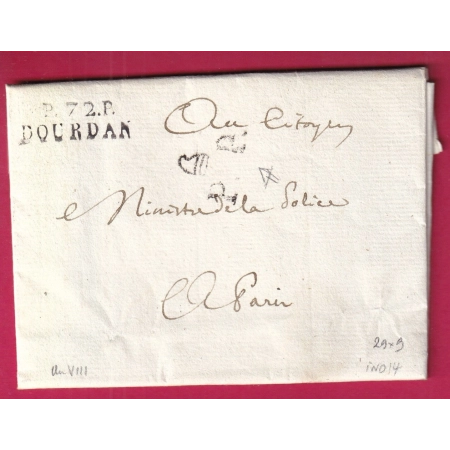 P.72.P.
DOURDAN
Au Citoyen
Ministre de la Police
A Paris
An VIII
29×9
IND14